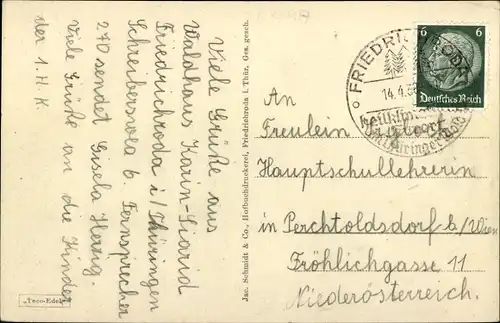 Viele Grüße aus
Waldhaus Karin-Sigrid
Friedrichroda i/Thüringen
Schreibersweg 6. Fernsprecher
270 sendet Gisela Herzig.
Viele Grüße an die Kinder
der 1. H. K.
Jac. Schmidt & Co., Hofbuchdruckerei, Friedrichroda i. Thür. Ges. gesch.
FRIEDRICHRODA
14.4.3
6 6
Deutsches Reich
An
Freulein
Hauptschullehrerin
in Perchtoldsdorf b/Wien
Fröhlichgasse 11
Niederösterreich.